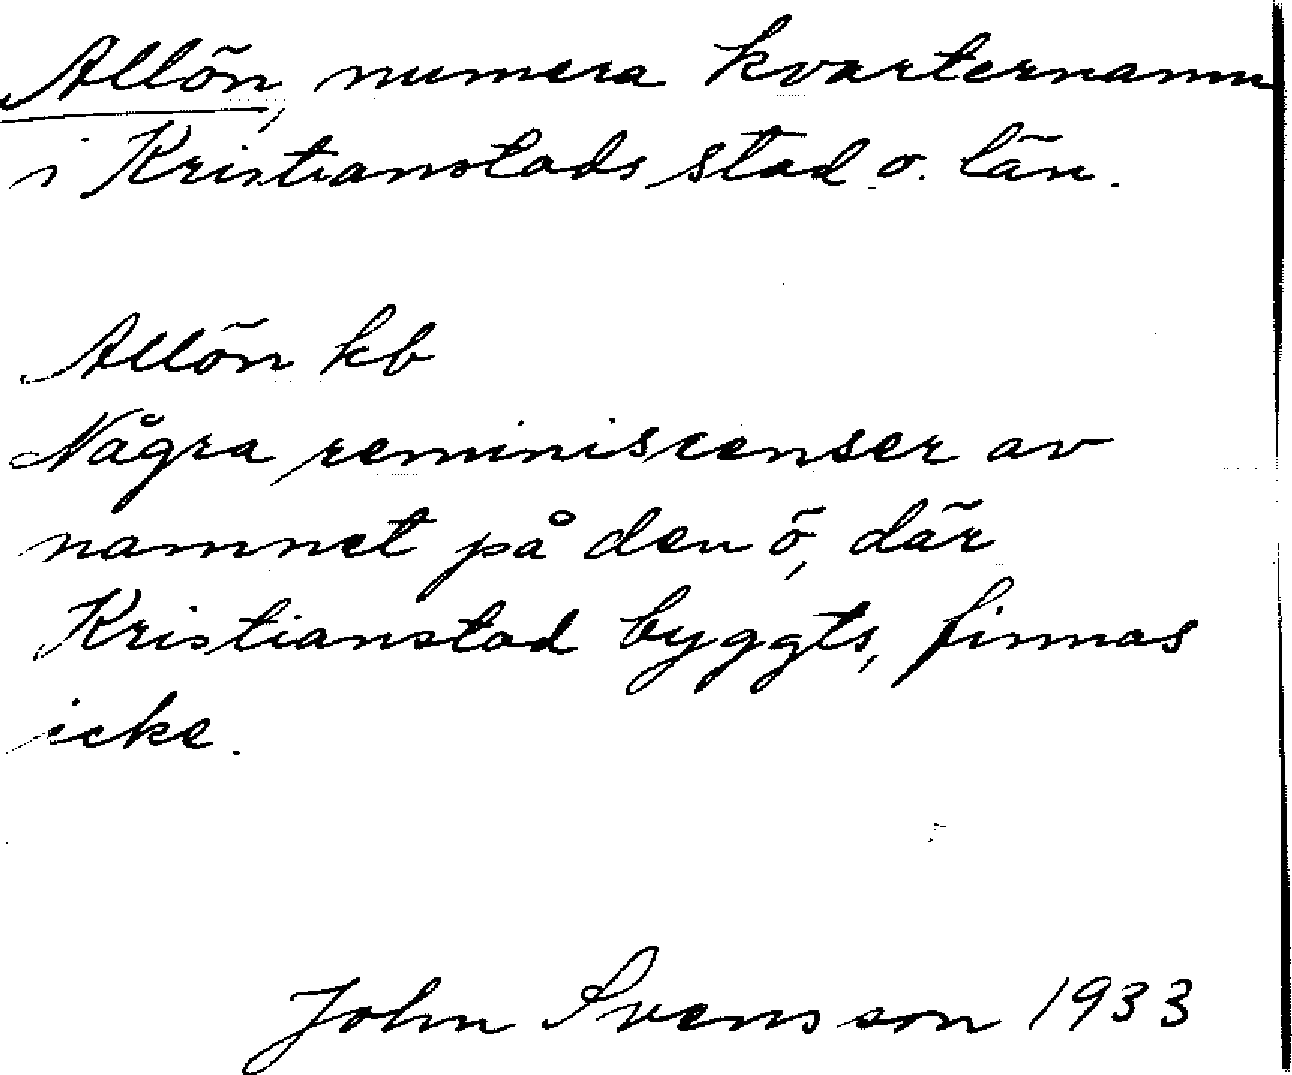 Allön, numera kvarternamn
i Kristianstads stad o. län.
Allön kb
Några reminiscenser av
namnet på den ö, där
Kristianstad byggts, finnas
icke.
John Svensson 1933